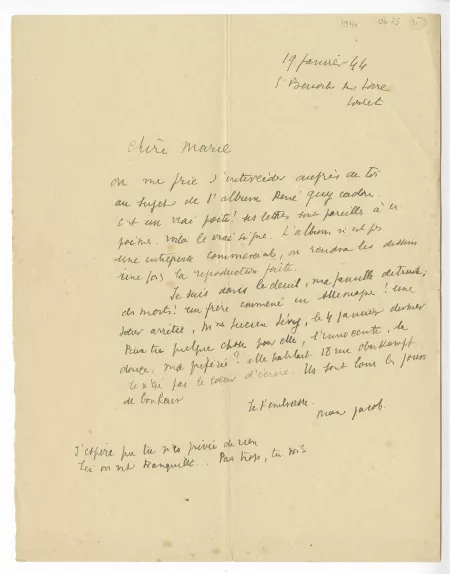 1944
19 janvier 44
St Benoit sur Loire
Loiret
Chère Marie
On me prie d'intercéder auprès de toi
au sujet de l'album René Guy Cadou.
C'est un vrai poète! ses lettres sont pareilles à ses
poèmes. Voilà le vrai signe. L'album n'est pas
une entreprise commerciale, on rendra les dessins
une fois la reproduction faite.
Je suis dans le deuil, ma famille détruite,
des morts! un frère emmené en Allemagne! une
soeur arrêtée, Mme Lucien Lévy, le 4 janvier dernier
Peux-tu quelque chose pour elle, l'innocente, la
douce, ma préférée? elle habitait 18 rue Oberkampf.
Je n'ai pas le coeur d'écrire. Ils sont loin les jours
de bonheur
Je t'embrasse.
Max Jacob.
J'espère que tu n'es privée de rien
Ici on vit tranquille... Pas trop, tu vois